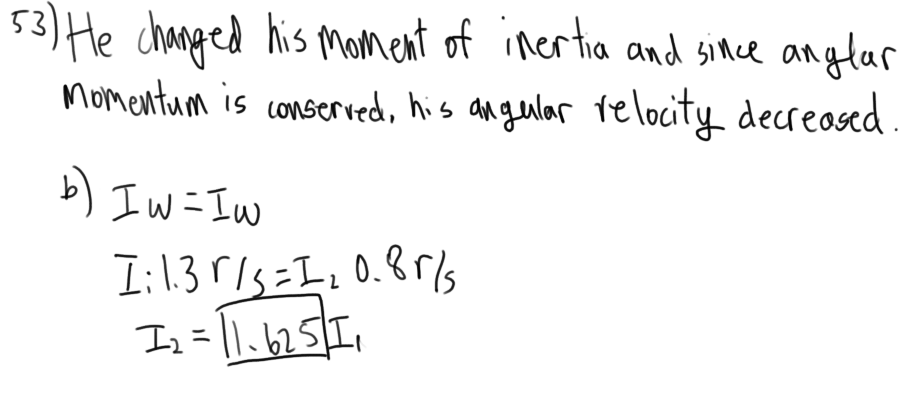 53) He changed his moment of inertia and since anglar
momentum is conserved, his angular velocity decreased.
b) Iw=Iw
I: 1.3 r/s = I₂ 0.8 r/s
I₂ = 1.625 I₁